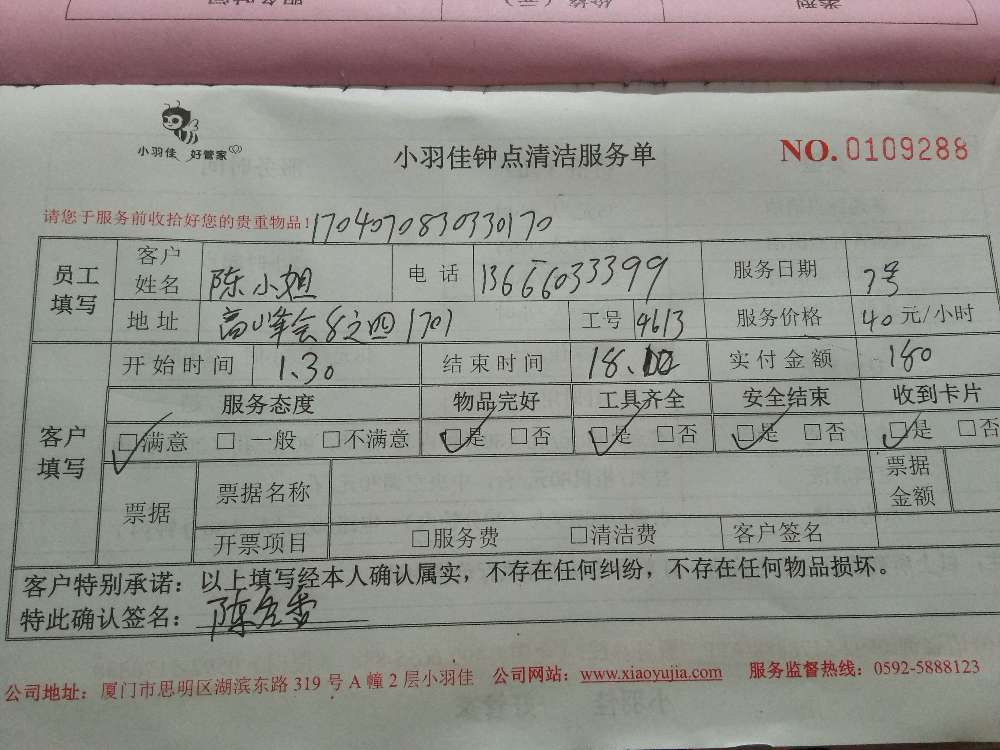 小羽佳 好管家
小羽佳钟点清洁服务单
NO. 0109288
请您于服务前收拾好您的贵重物品! 1704070830330170
员工填写 客户姓名 陈小姐 电话 13666033399 服务日期 7号
地址 高峰会8之四1701 工号 4613 服务价格 40元/小时
客户填写 开始时间 1.30 结束时间 18.00 实付金额 180
服务态度 物品完好 工具齐全 安全结束 收到卡片
☑满意 □一般 □不满意 ☑是 □否 ☑是 □否 ☑是 □否 ☑是 □否
票据 票据名称 票据金额
开票项目 □服务费 □清洁费 客户签名
客户特别承诺：以上填写经本人确认属实，不存在任何纠纷，不存在任何物品损坏。
特此确认签名：陈
公司地址：厦门市思明区湖滨东路319号A幢2层小羽佳 公司网站：www.xiaoyujia.com 服务监督热线：0592-5888123